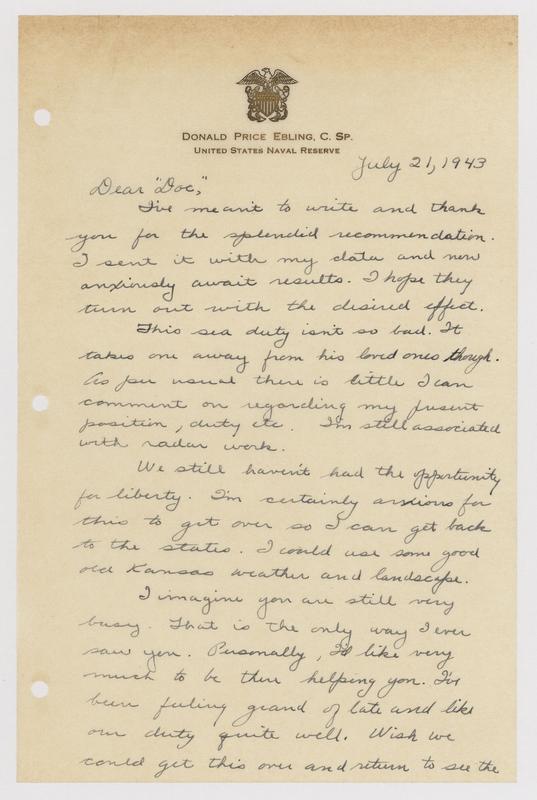 DONALD PRICE EBLING, C. SP.
UNITED STATES NAVAL RESERVE
July 21, 1943
Dear "Doc,"
I've meant to write and thank
you for the splendid recommendation.
I sent it with my data and now
anxiously await results. I hope they
turn out with the desired effect.
This sea duty isn't so bad. It
takes one away from his loved ones though.
As per usual there is little I can
comment on regarding my present
position, duty etc. I'm still associated
with radar work.
We still haven't had the opportunity
for liberty. I'm certainly anxious for
this to get over so I can get back
to the states. I could use some good
old Kansas weather and landscape.
I imagine you are still very
busy. That is the only way I ever
saw you. Personally, I'd like very
much to be there helping you. I've
been feeling grand of late and like
our duty quite well. Wish we
could get this over and return to see the